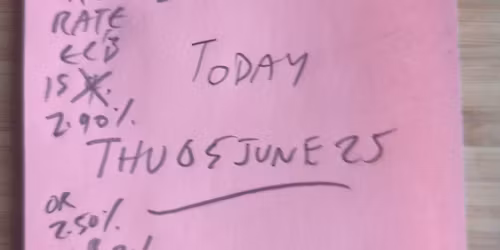 RATE
ECB
TODAY
15
2.90%
THU 05 JUNE 25
OR
2.50%